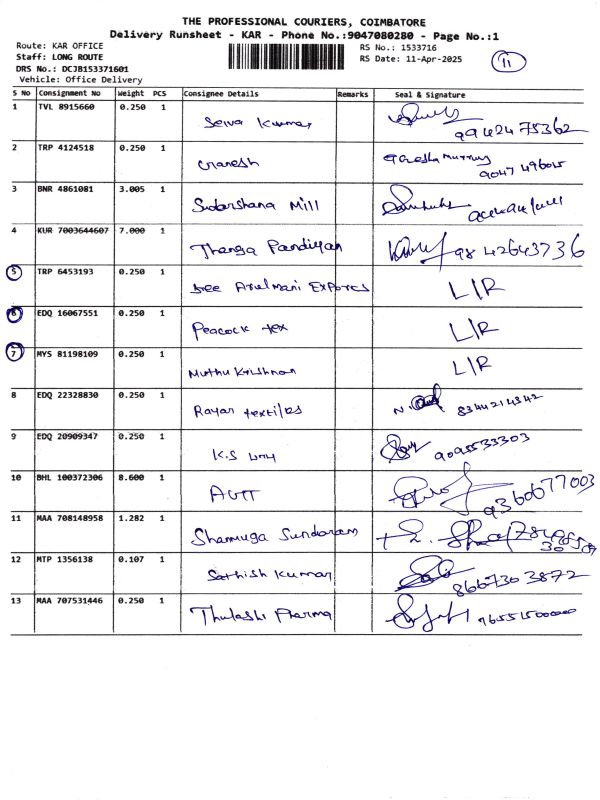 THE PROFESSIONAL COURIERS, COIMBATORE
Delivery Runsheet - KAR - Phone No.:9047080280 - Page No.:1
Route: KAR OFFICE RS No.: 1533716
Staff: LONG ROUTE RS Date: 11-Apr-2025 11
DRS No.: DCJB153371601
Vehicle: Office Delivery
S No Consignment No Weight PCS Consignee Details Remarks Seal & Signature
1 TVL 8915660 0.250 1 Selva Kumar 9942475362
2 TRP 4124518 0.250 1 Ganesh 9047496015
3 BNR 4861081 3.005 1 Sudarshana Mill
4 KUR 7003644607 7.000 1 Thanga Pandiyan 9842643736
5 TRP 6453193 0.250 1 Sree Arulmani Exports L/R
6 EDQ 16067551 0.250 1 Peacock tex L/R
7 MYS 81198109 0.250 1 Muthu Krishnan L/R
8 EDQ 22328830 0.250 1 Rayar textiles 8344214342
9 EDQ 20909347 0.250 1 K.S 9095533303
10 BHL 100372306 8.600 1 9360677003
11 MAA 708148958 1.282 1 Shanmuga Sundaram
12 MTP 1356138 0.107 1 Sathish Kumar 8667303872
13 MAA 707531446 0.250 1 Thulashi Pharma 9655150000